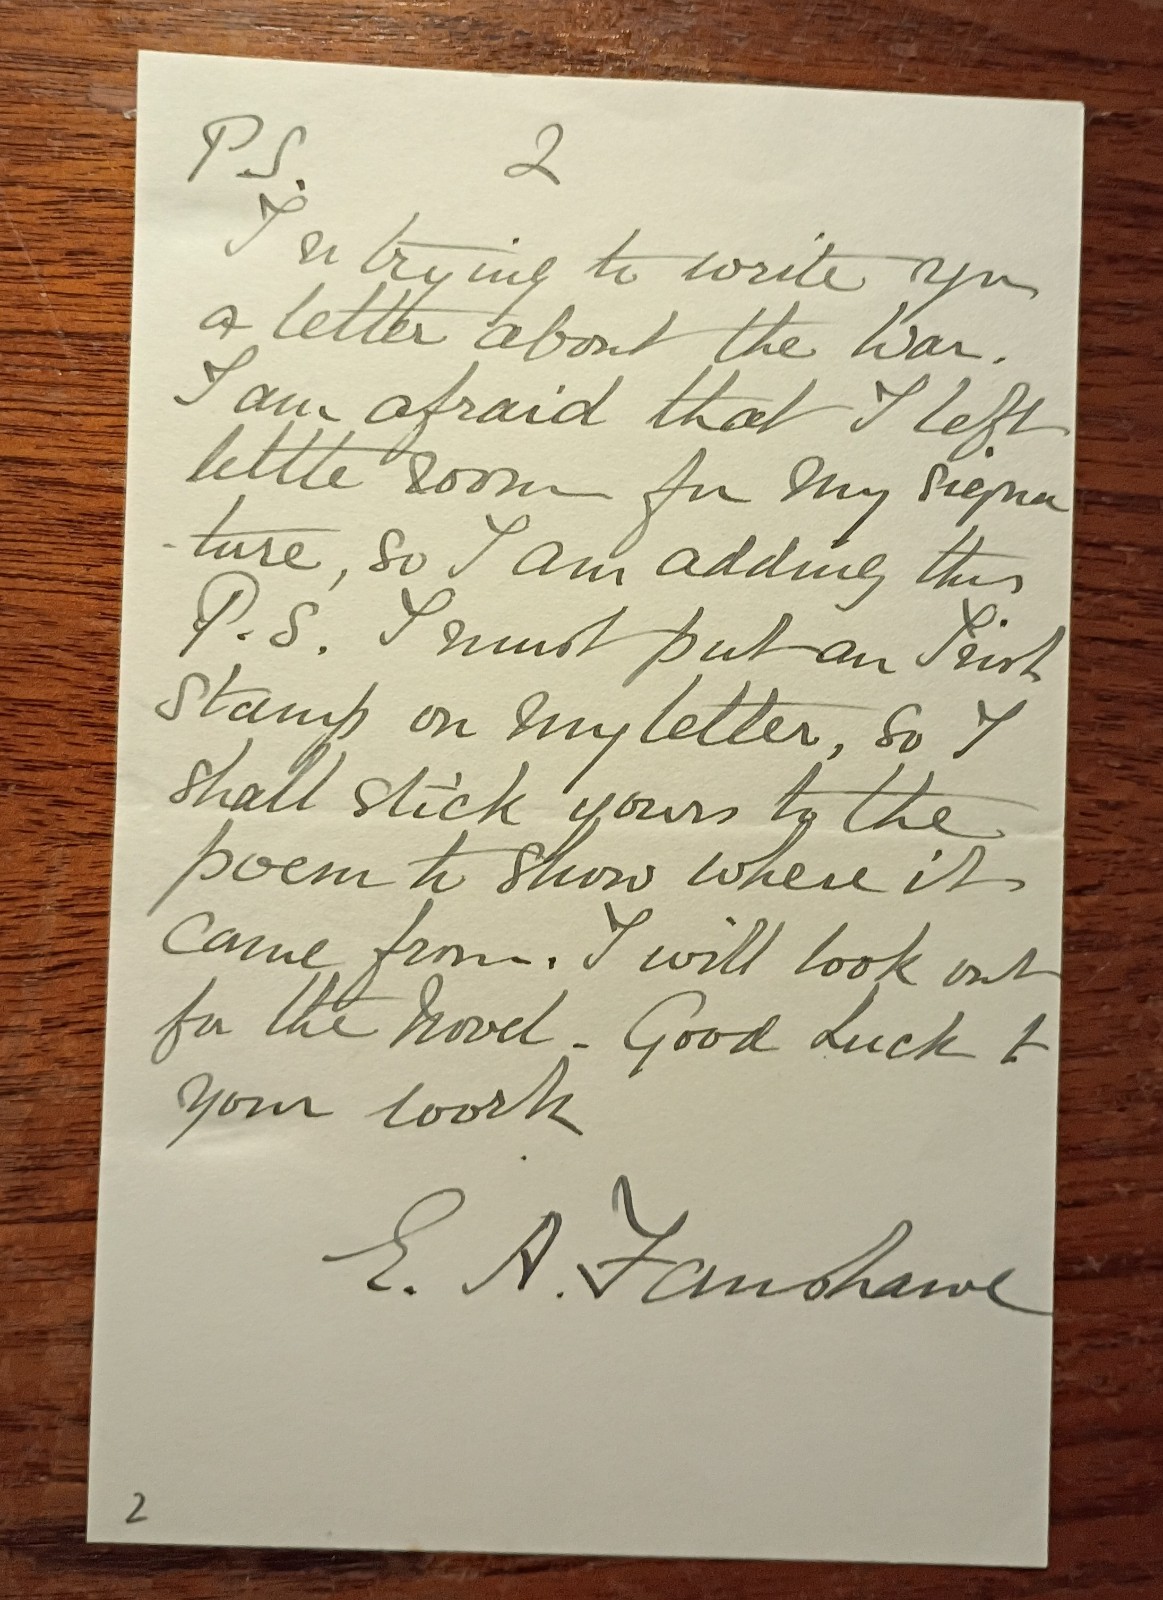 P.S. 2
I'm trying to write you
a letter about the War.
I am afraid that I left
little room for my signa
-ture, so I am adding this
P.S. I must put an Irish
stamp on my letter, so I
shall stick yours to the
poem to show where it
came from. I will look out
for the Novel. Good Luck to
your work
E. A. Fanshawe
2